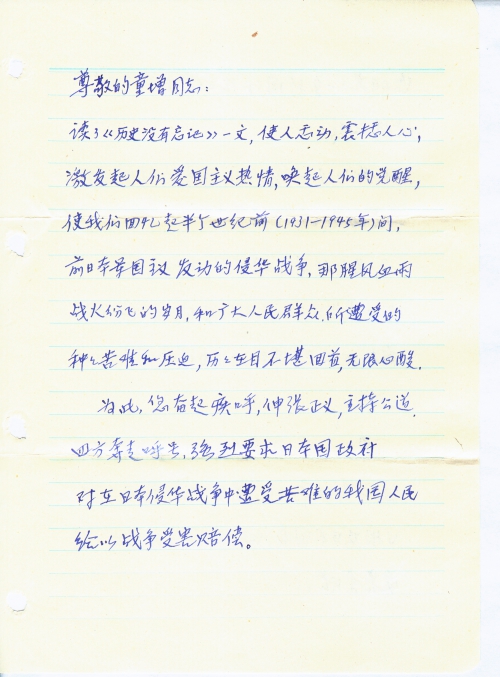 尊敬的童增同志：
读了《历史没有忘记》一文，使人志动，震撼人心，
激发起人们爱国主义热情，唤起人们的觉醒，
使我们回忆起半个世纪前（1931—1945年）间，
前日本军国主义发动的侵华战争，那腥风血雨
战火纷飞的岁月，和广大人民群众，所遭受的
种种苦难和压迫，历历在目不堪回首，无限心酸。
为此，您奋起疾呼，伸张正义，主持公道，
四方奔走呼号，强烈要求日本国政府
对在日本侵华战争中遭受苦难的我国人民
给以战争受害赔偿。